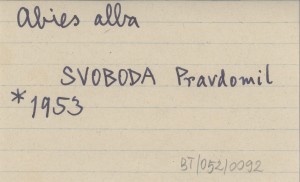 Abies alba
SVOBODA Pravdomil
*1953
BT/052/0092